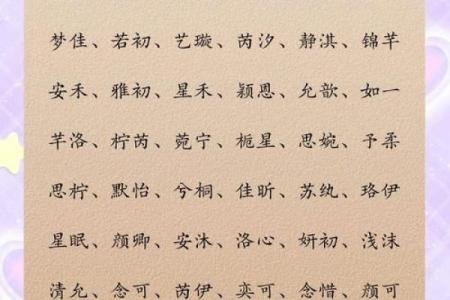 梦佳、若初、艺璇、芮汐、静淇、锦芊
安禾、雅初、星禾、颖恩、允歆、如一
芊洛、柠芮、菀宁、栀星、思婉、予柔
思柠、默怡、兮桐、佳昕、苏纨、珞伊
星眠、颜卿、安沐、洛心、妍初、浅沫
清允、念可、芮伊、奕可、念惜、颜可